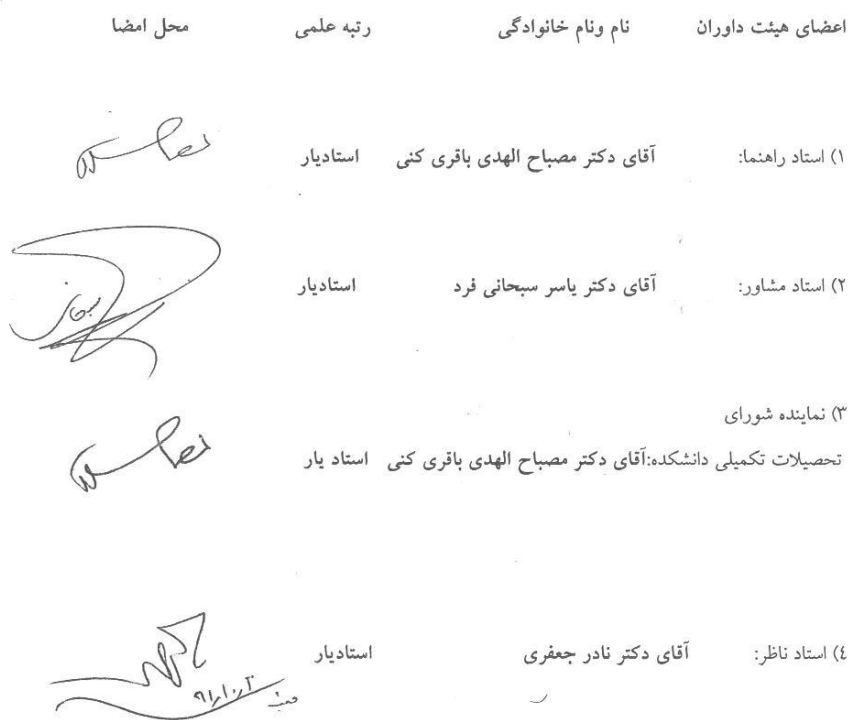 اعضای هیئت داوران نام ونام خانوادگی رتبه علمی محل امضا
۱) استاد راهنما: آقای دکتر مصباح الهدی باقری کنی استادیار
۲) استاد مشاور: آقای دکتر یاسر سبحانی فرد استادیار
۳) نماینده شورای
تحصیلات تکمیلی دانشکده:آقای دکتر مصباح الهدی باقری کنی استاد یار
٤) استاد ناظر: آقای دکتر نادر جعفری استادیار